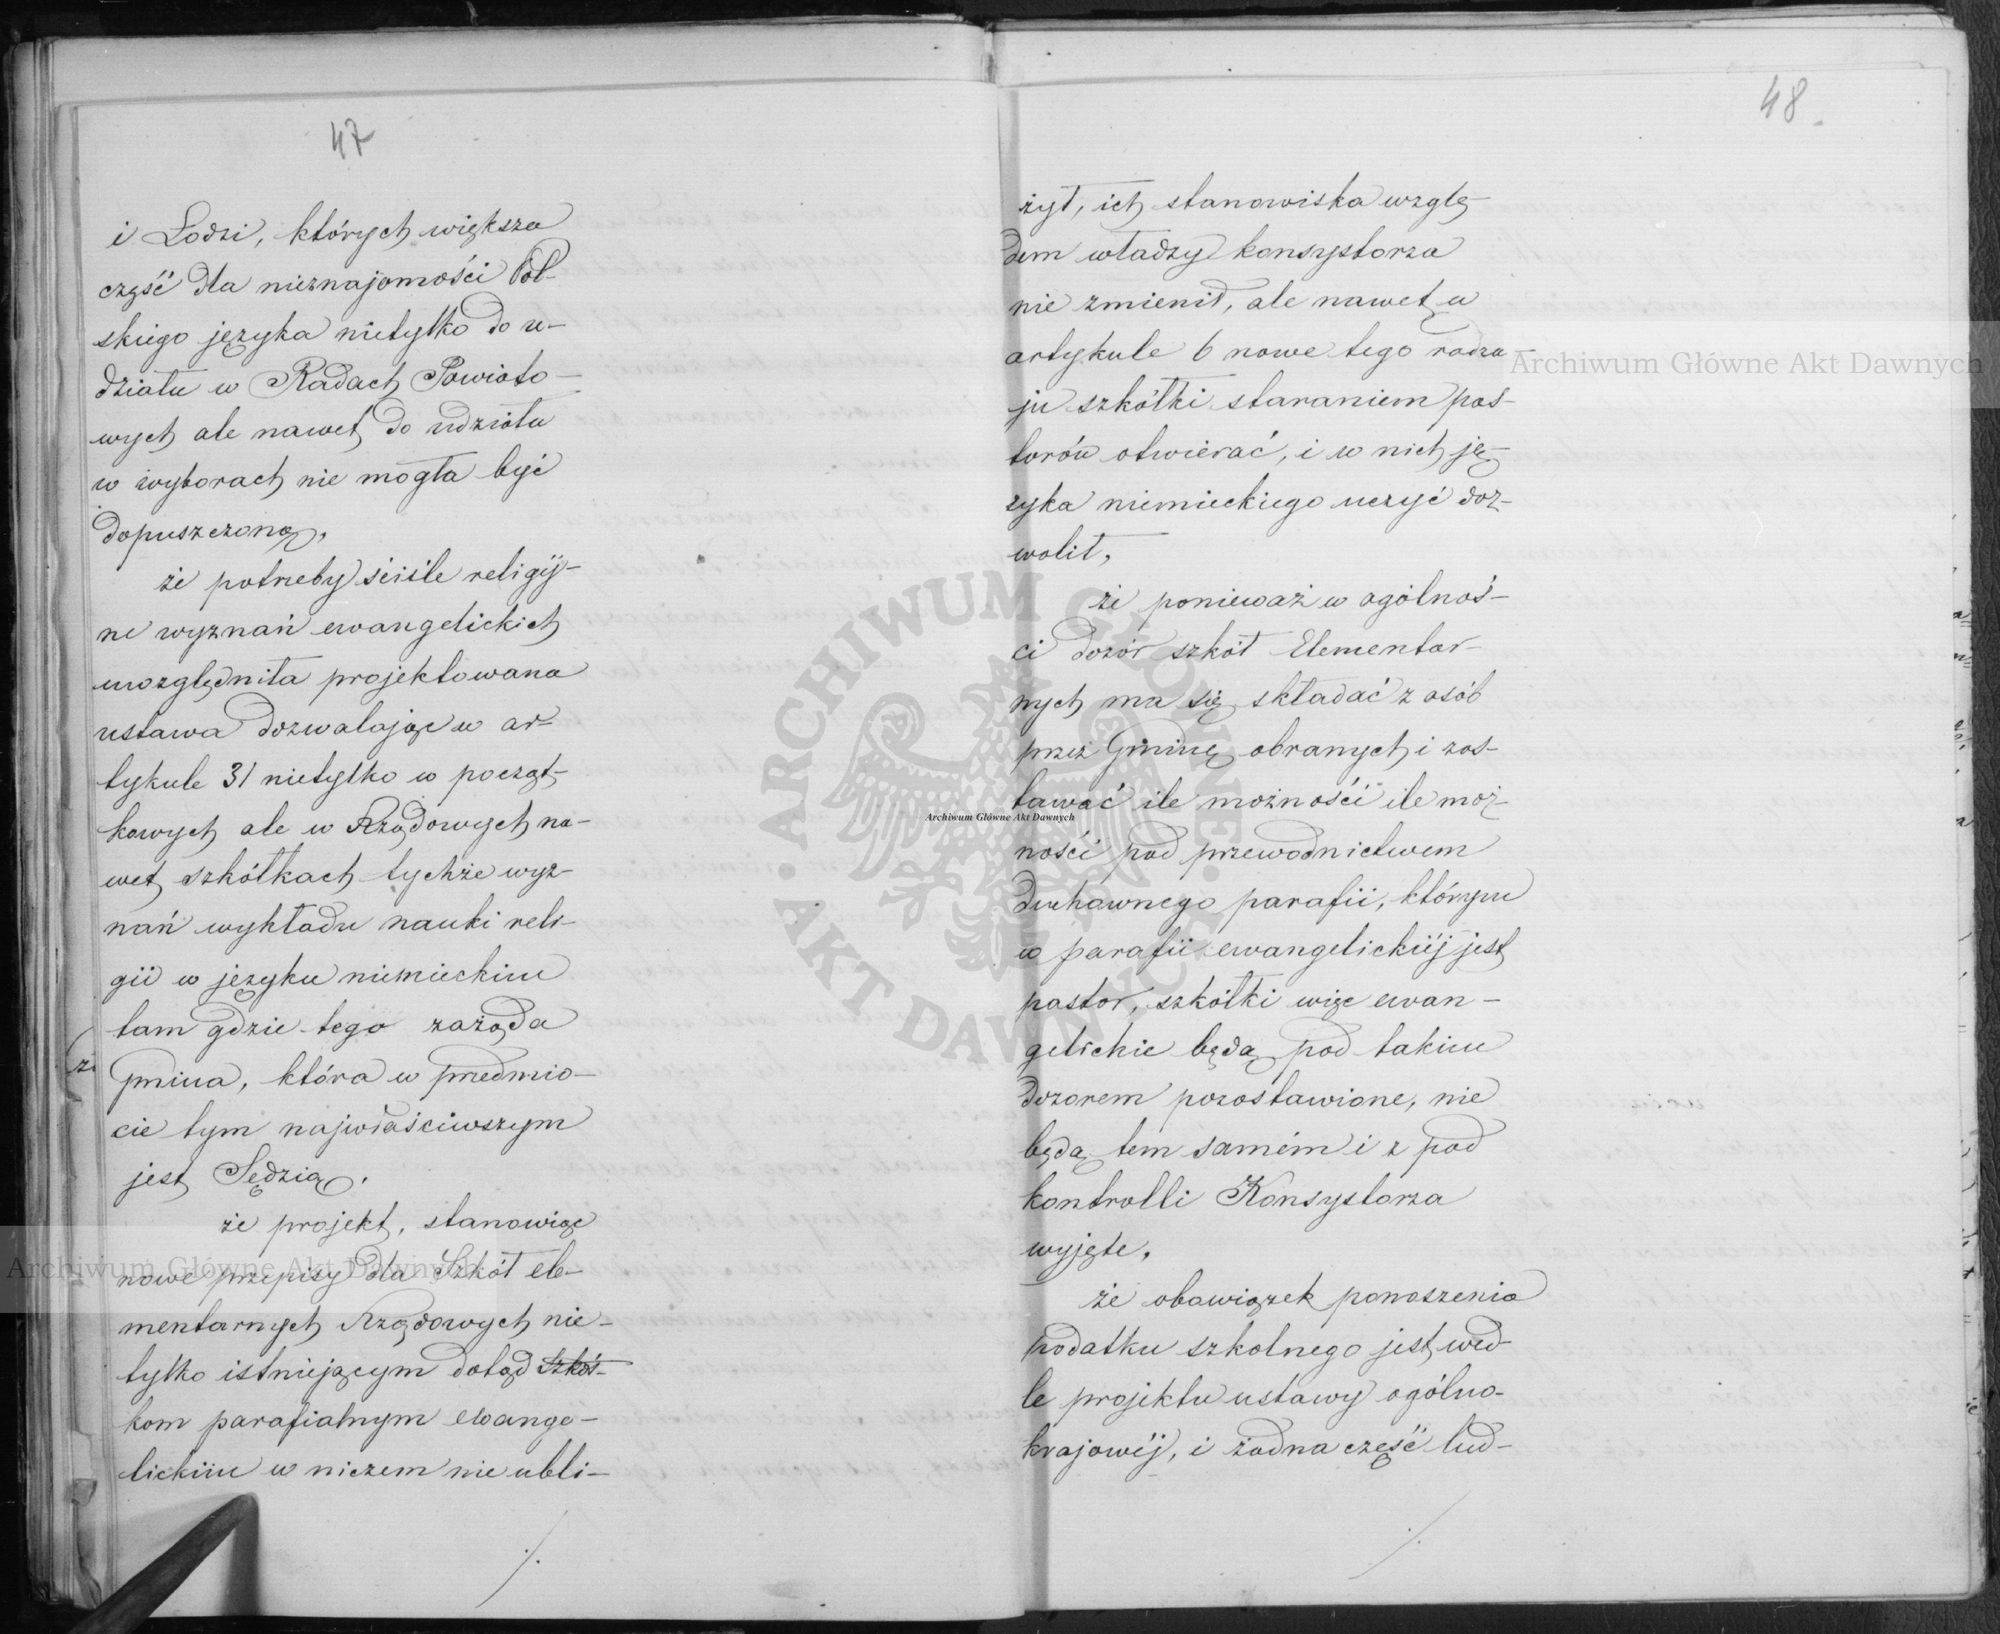 47
i Łodzi, których większa
część dla nieznajomości Pol-
skiego języka nietylko do u-
działu w Radach Powiato-
wych ale nawet do udziału
w wyborach nie mogła być
dopuszczoną,
że potrzeby ściśle religij-
ne wyznań ewangelickich
uwzględniła projektowana
ustawa dozwalając w ar-
tykule 31 nietylko w począt-
kowych ale w Rządowych na-
wet szkółkach tychże wyz-
nań wykładu nauki reli-
gii w języku niemieckim
tam gdzie tego zażąda
Gmina, która w przedmio-
cie tym najwłaściwszym
jest Sędzią,
że projekt, stanowiąc
nowe przepisy dla Szkół ele-
mentarnych Rządowych nie-
tylko istniejącym dotąd szkół-
kom parafialnym ewange-
lickim w niczem nie ubli-
./.
48
żył, ich stanowiska wzglę-
dem władzy konsystorza
nie zmienił, ale nawet w
artykule 6 nowe tego rodza-
ju szkółki staraniem pas-
torów otwierać, i w nich ję-
zyka niemieckiego uczyć doz-
wolił,
że ponieważ w ogólnoś-
ci dozór szkół Elementar-
nych ma się składać z osób
przez Gminę obranych i zos-
tawać ile możności ile moż-
ności pod przewodnictwem
duchownego parafii, którym
w parafii ewangelickiéj jest
pastor, szkółki więc ewan-
gelickie będą pod takim
dozorem pozostawione, nie
będą tem samém i z pod
kontrolli Konsystorza
wyjęte,
że obowiązek ponoszenia
podatku szkolnego jest wed-
le projektu ustawy ogólno-
krajowéj, i żadna część lud-
./.
Archiwum Główne Akt Dawnych
Archiwum Główne Akt Dawnych
Archiwum Główne Akt Dawnych
ARCHIWUM GŁÓWNE AKT DAWNYCH